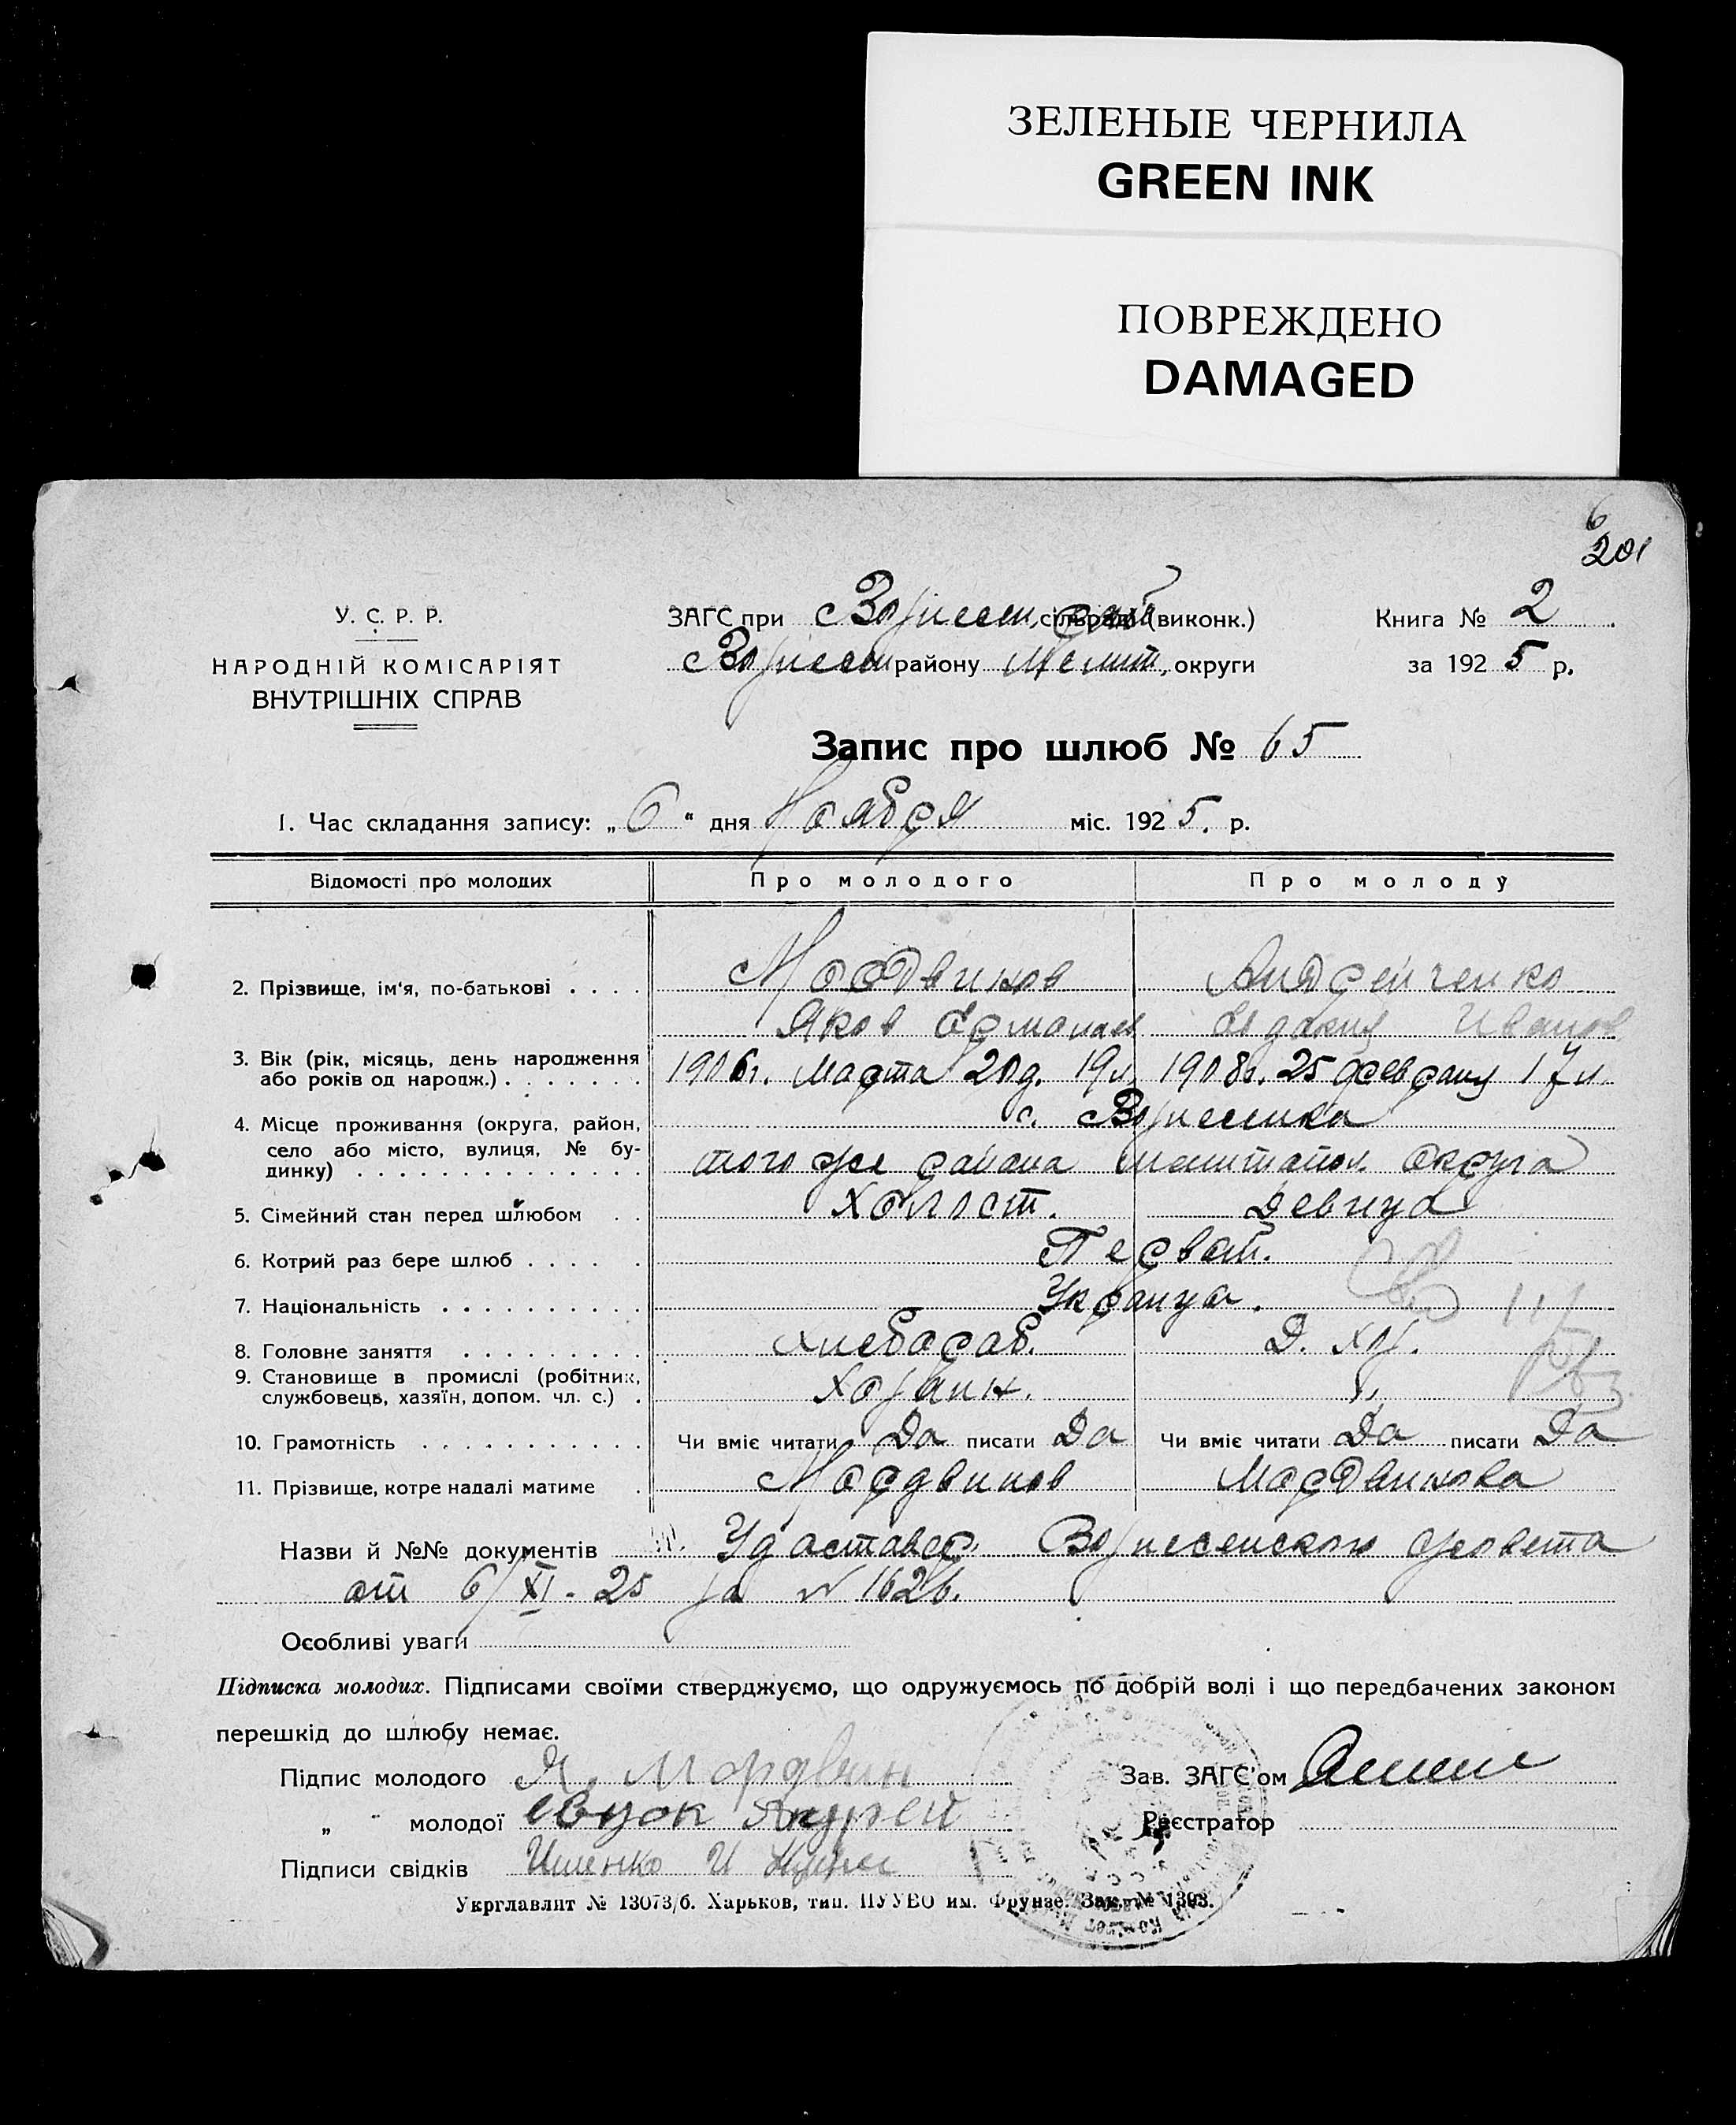 ЗЕЛЕНЫЕ ЧЕРНИЛА
GREEN INK
ПОВРЕЖДЕНО
DAMAGED
6
201
У. С. Р. Р.
НАРОДНІЙ КОМІСАРІЯТ
ВНУТРІШНІХ СПРАВ
ЗАГС при Вознесен. сільраді (виконк.)
Вознесен району Мелит. округи
Книга № 2
за 1925 р.
Запис про шлюб № 65
1. Час складання запису: „6“ дня Ноября міс. 1925. р.
Відомості про молодих Про молодого Про молоду
2. Прізвище, ім'я, по-батькові . . . . Мордвинов Андрейченко
Яков Ермолаев Евдокия Иванов
3. Вік (рік, місяць, день народження або років од народж.) . . . . . . . 1906г. Марта 20д. 19л. 1908г. 25 февраля 17л.
4. Місце проживання (округа, район, село або місто, вулиця, № будинку) . . . . . . . . . . . . . . с. Вознесенка
того же района Мелитопол. округа
5. Сімейний стан перед шлюбом . . Холост. Девица
6. Котрий раз бере шлюб . . . . . Первый.
7. Національність . . . . . . . . . . Украинца.
8. Головне заняття . . . . . . . . . Хлебороб. Д. хоз.
9. Становище в промислі (робітник, службовець, хазяїн, допом. чл. с.) . Хозяин. „
10. Грамотність . . . . . . . . . . . Чи вміє читати Да писати Да Чи вміє читати Да писати Да
11. Прізвище, котре надалі матиме . Мордвинов Мордвинова
Назви й №№ документів Удостовер. Вознесенского
от 6/XI - 25 за № 1626.
Особливі уваги
Підписка молодих. Підписами своїми стверджуємо, що одружуємось по добрій волі і що передбачених законом
перешкід до шлюбу немає.
Підпис молодого Я. Мордвин Зав. ЗАГС'ом
„ молодої Андрей Реєстратор
Підписи свідків
Укрглавлит № 13073/б. Харьков, тип. ПУУВО им. Фрунзе. Зак. № 1393.